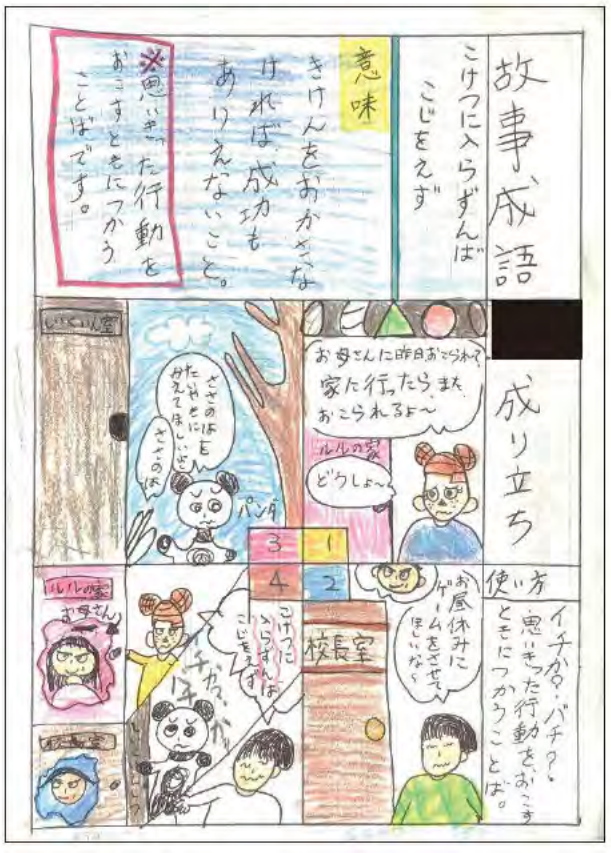 故事成語
こけつに入らずんば
こじをえず
意味
きけんをおかさな
ければ、成功も
ありえないこと。
※思いきった行動を
おこすときにつかう
ことばです。
成り立ち
お母さんに昨日おこられて、
家に行ったら、また、
おこられるよ〜
ルルの家
どうしよ〜
パンダ
ささのは
3
1
4
2
使い方
イチか?・バチ?・
思いきった行動をおこす
ときにつかうことば。
お昼休みに
ゲームをさせて
ほしいな〜
校長室
こけつに
入らずんば
こじをえず
ルルの家
お母さん
校長室